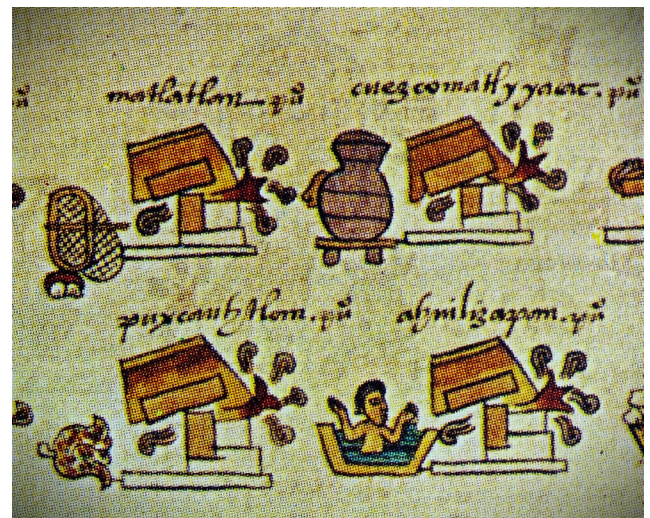 matlatlan pũ
cuezcomatlyyacac. pũ
puxcauhtlan. pũ
ahuilizapan. pũ